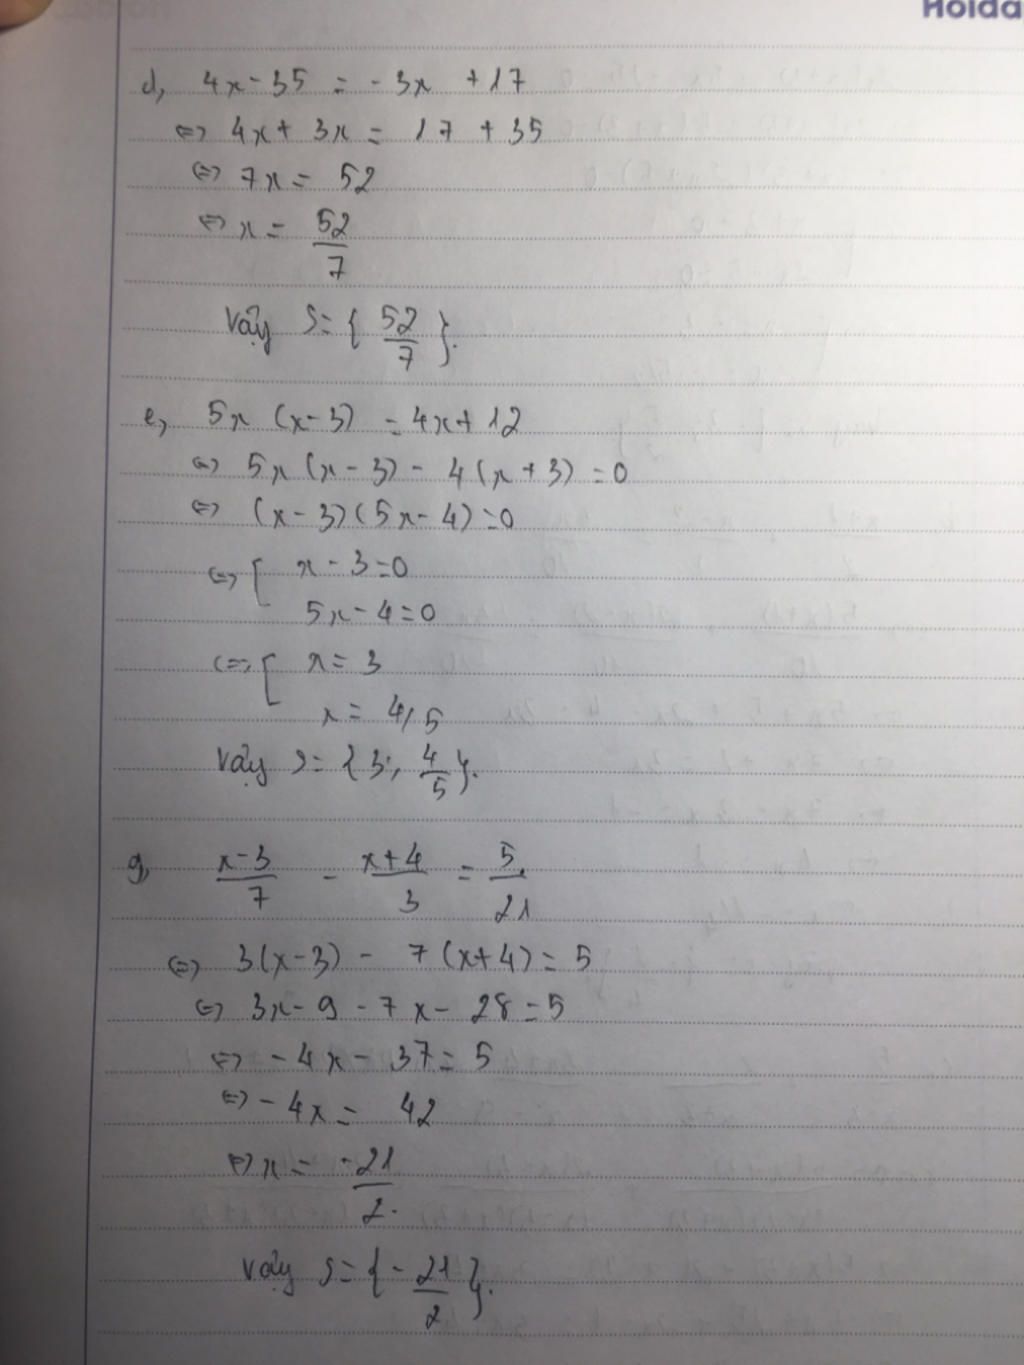 Holda
d, 4x - 35 = -3x + 17
⇔ 4x + 3x = 17 + 35
⇔ 7x = 52
⇔ x = 52/7
Vậy S = { 52/7 }.
e, 5x (x - 3) = 4x + 12
⇔ 5x (x - 3) - 4 (x + 3) = 0
⇔ (x - 3)(5x - 4) = 0
⇔ [ x - 3 = 0
5x - 4 = 0
⇔ [ x = 3
x = 4/5
Vậy S = { 3; 4/5 }.
g, x-3/7 - x+4/3 = 5/21
⇔ 3(x - 3) - 7(x + 4) = 5
⇔ 3x - 9 - 7x - 28 = 5
⇔ -4x - 37 = 5
⇔ -4x = 42
⇔ x = -21/2.
Vậy S = { -21/2 }.